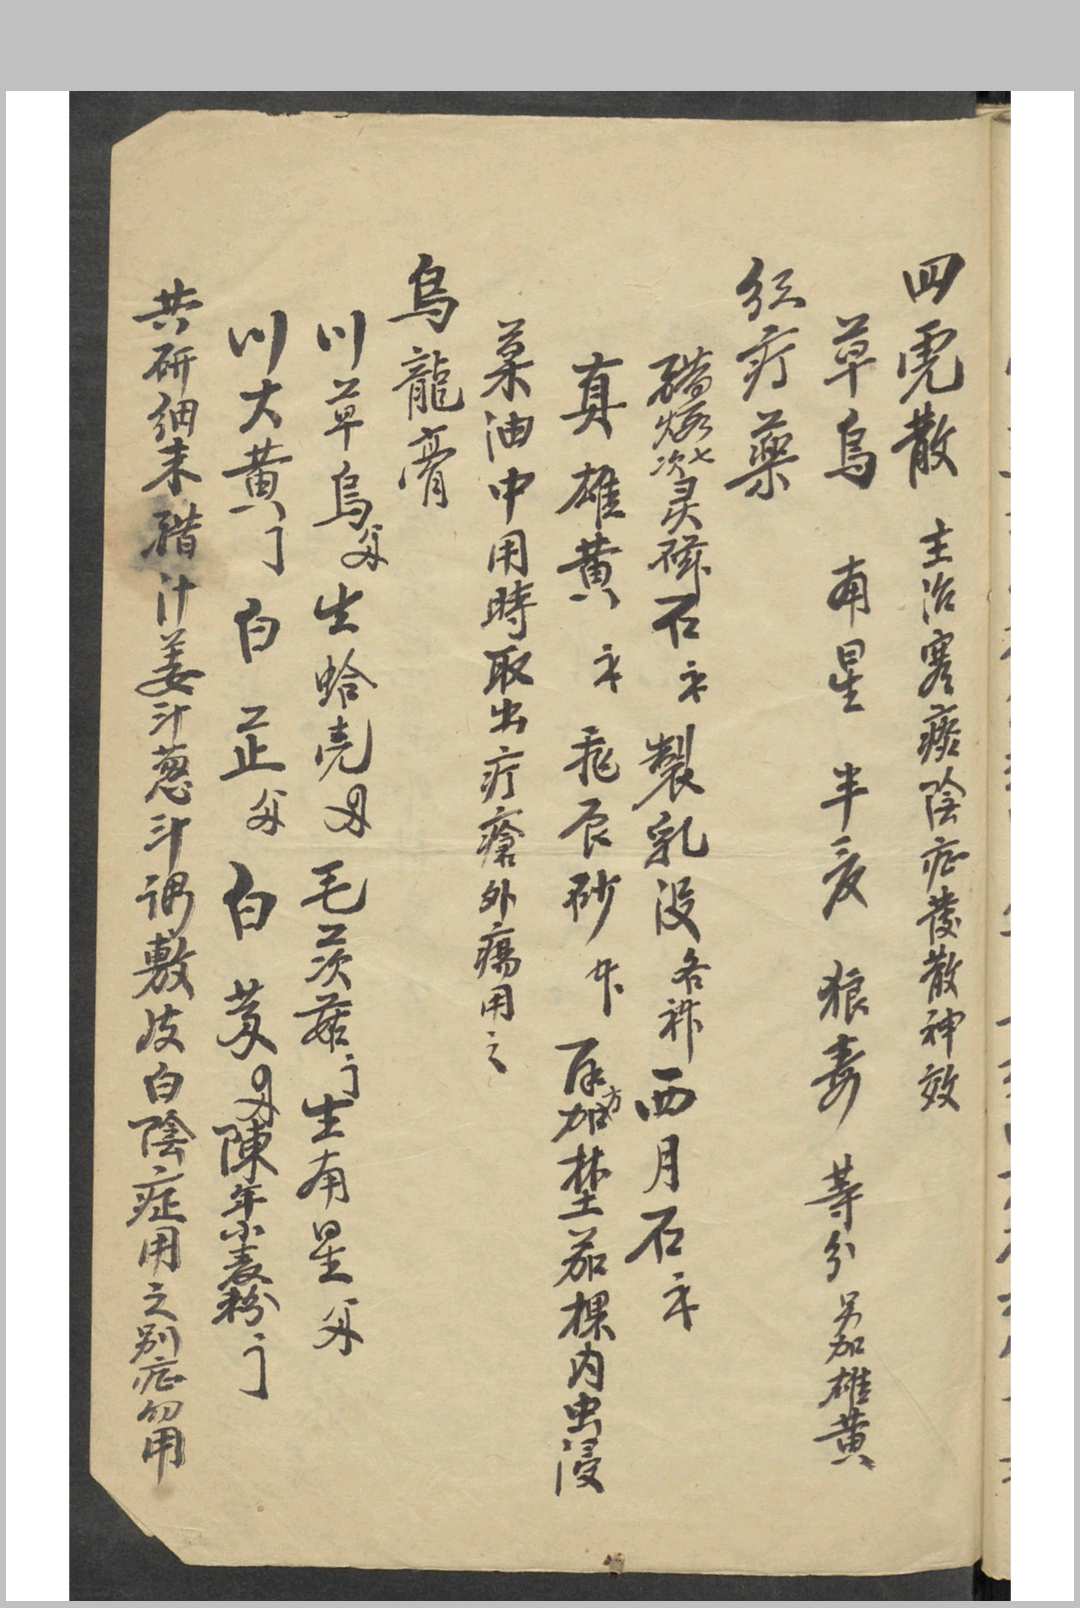 四虎散 主治寒痰陰症發散神效
草烏 南星 半夏 狼毒 等分 另加雄黄
紅疔藥
醋煅七次灵磁石 製乳没各 西月石
真雄黄 飛辰砂 后方加埜茄棵内虫浸
菜油中用時取出疔瘡外瘍用之
烏龍膏
川草烏 生蛤壳 毛茨菇 生南星
川大黄 白芷 白芨 陳年小麦粉
共研細末醋汁姜汁葱汁调敷皮白陰症用之别症勿用